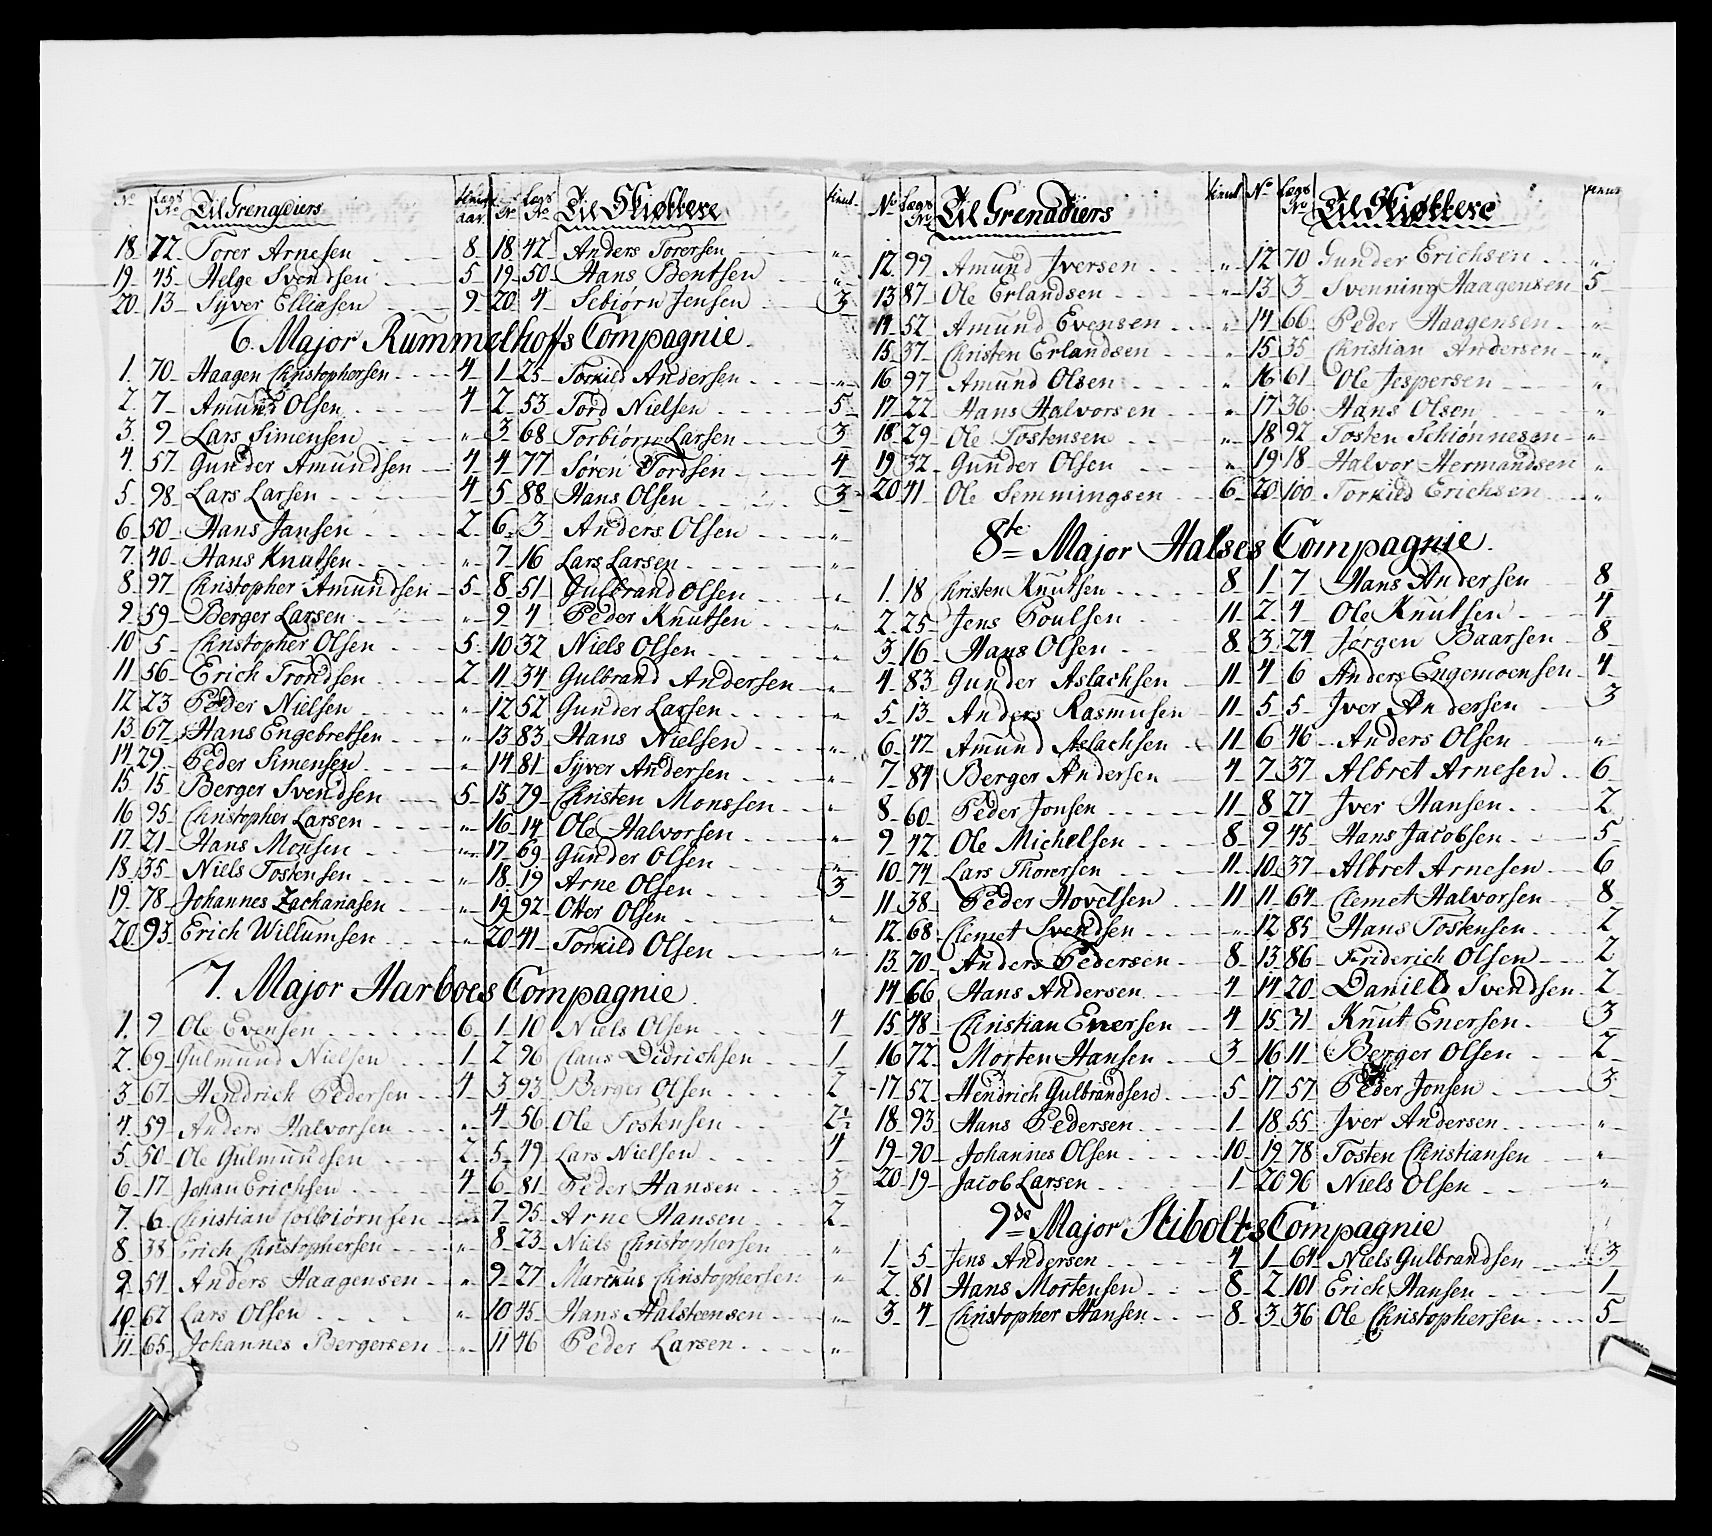 No Lægs No Til Grenadiers tient aar No Lægs No Til Skjøttere tient
18 72 Torer Arnesen 8 18 42 Anders Torersen "
19 45 Helge Svendsen 5 19 50 Hans Bentsen "
20 13 Syver Elliasen 9 20 4 Sebiørn Jensen 3
6. Major Rummelhoffs Compagnie
1 70 Haagen Christophersen 4 1 25 Torkild Andersen "
2 7 Amund Olsen 4 2 53 Tord Nielsen 5
3 9 Lars Simensen " 3 68 Torbiørn Larsen 3
4 57 Gunder Amundsen 4 4 77 Søren Tordsen 4
5 98 Lars Larsen 4 5 88 Hans Olsen 3
6 50 Hans Jansen 2 6 3 Anders Olsen "
7 40 Hans Knutsen " 7 16 Lars Larsen "
8 97 Christopher Amundsen 5 8 51 Gulbrand Olsen "
9 59 Berger Larsen " 9 4 Peder Knutsen "
10 5 Christopher Olsen 5 10 32 Niels Olsen "
11 56 Erich Trondsen 2 11 34 Gulbrand Andersen "
12 23 Peder Nielsen " 12 52 Gunder Larsen "
13 67 Hans Engebretsen " 13 83 Hans Nielsen "
14 29 Peder Simensen " 14 81 Syver Andersen "
15 15 Berger Svendsen 5 15 79 Christen Monssen "
16 95 Christopher Larsen " 16 14 Ole Halvorsen "
17 21 Hans Monsen " 17 69 Gunder Olsen "
18 35 Niels Tostensen " 18 19 Arne Olsen 3
19 78 Johannes Zachariasen " 19 92 Otter Olsen "
20 93 Erich Willumsen " 20 41 Torkild Olsen "
7. Major Harboes Compagnie
1 9 Ole Evensen 6 1 10 Niels Olsen 4
2 69 Gulmund Nielsen 1 2 96 Claus Didrichsen 1
3 67 Hendrick Pedersen 4 3 93 Berger Olsen 2
4 59 Anders Halvorsen " 4 56 Ole Tostensen 2½
5 50 Ole Gulmundsen 2 5 49 Lars Nielsen 4
6 17 Johan Erichsen 4 6 81 Peder Hansen 3
7 6 Christian Colbiørnsen " 7 95 Arne Hansen 2
8 38 Erich Christophersen " 8 23 Niels Christophersen "
9 51 Anders Haagensen " 9 27 Marcus Christophersen "
10 62 Lars Olsen " 10 45 Hans Halsteensen "
11 65 Johannes Bergersen " 11 46 Peder Larsen "
No Lægs No Til Grenadiers tient No Lægs No Til Skjøttere tient
12 99 Amund Iversen " 12 70 Gunder Erichsen "
13 87 Ole Erlandsen " 13 3 Svenning Haagensen 5
14 52 Amund Evensen " 14 66 Peder Haagensen "
15 37 Christen Erlandsen " 15 35 Christian Andersen "
16 97 Amund Olsen " 16 61 Ole Jespersen "
17 22 Hans Halvorsen " 17 36 Hans Olsen "
18 29 Ole Tostensen " 18 92 Tosten Schiønnesen "
19 32 Gunder Olsen " 19 18 Halvor Hermandsen "
20 41 Ole Semmingsen 6 20 100 Torkild Erichsen "
8te Major Halses Compagnie.
1 18 Christen Knutsen 8 1 7 Hans Andersen 8
2 25 Jens Poulsen 11 2 4 Ole Knutsen 4
3 16 Hans Olsen 8 3 24 Jørgen Baarsen 8
4 83 Gunder Aslachsen 11 4 6 Anders Engemoensen 4
5 13 Anders Rasmusen 11 5 5 Iver Andersen 3
6 47 Amund Aslachsen 11 6 46 Anders Olsen "
7 84 Berger Andersen 4 7 37 Albret Arnesen 6
8 60 Peder Jonsen 11 8 27 Iver Hansen 2
9 42 Ole Michelsen 8 9 45 Hans Jacobsen 5
10 74 Lars Thorersen 11 10 37 Albret Arnesen 6
11 38 Peder Hovelsen 11 11 64 Clemet Halvorsen 8
12 68 Clemet Svendsen " 12 85 Hans Tostensen 2
13 70 Anders Pedersen 8 13 86 Friderich Olsen 2
14 66 Hans Andersen 4 14 20 Danield Svendsen 2
15 48 Christian Enersen 4 15 31 Knut Enersen 3
16 72 Morten Hansen 3 16 11 Berger Olsen 2
17 52 Hendrich Gulbrandsen 5 17 57 Peder Jonsen 3
18 93 Hans Pedersen 1 18 55 Iver Andersen "
19 90 Johannes Olsen 10 19 78 Tosten Christiansen "
20 19 Jacob Larsen 1 20 96 Niels Olsen "
9de Major Stibolts Compagnie
1 5 Jens Andersen 4 1 64 Niels Gulbrandsen 3
2 81 Hans Mortensen 8 2 101 Erich Hansen 1
3 4 Christopher Hansen 8 3 36 Ole Christophersen 5